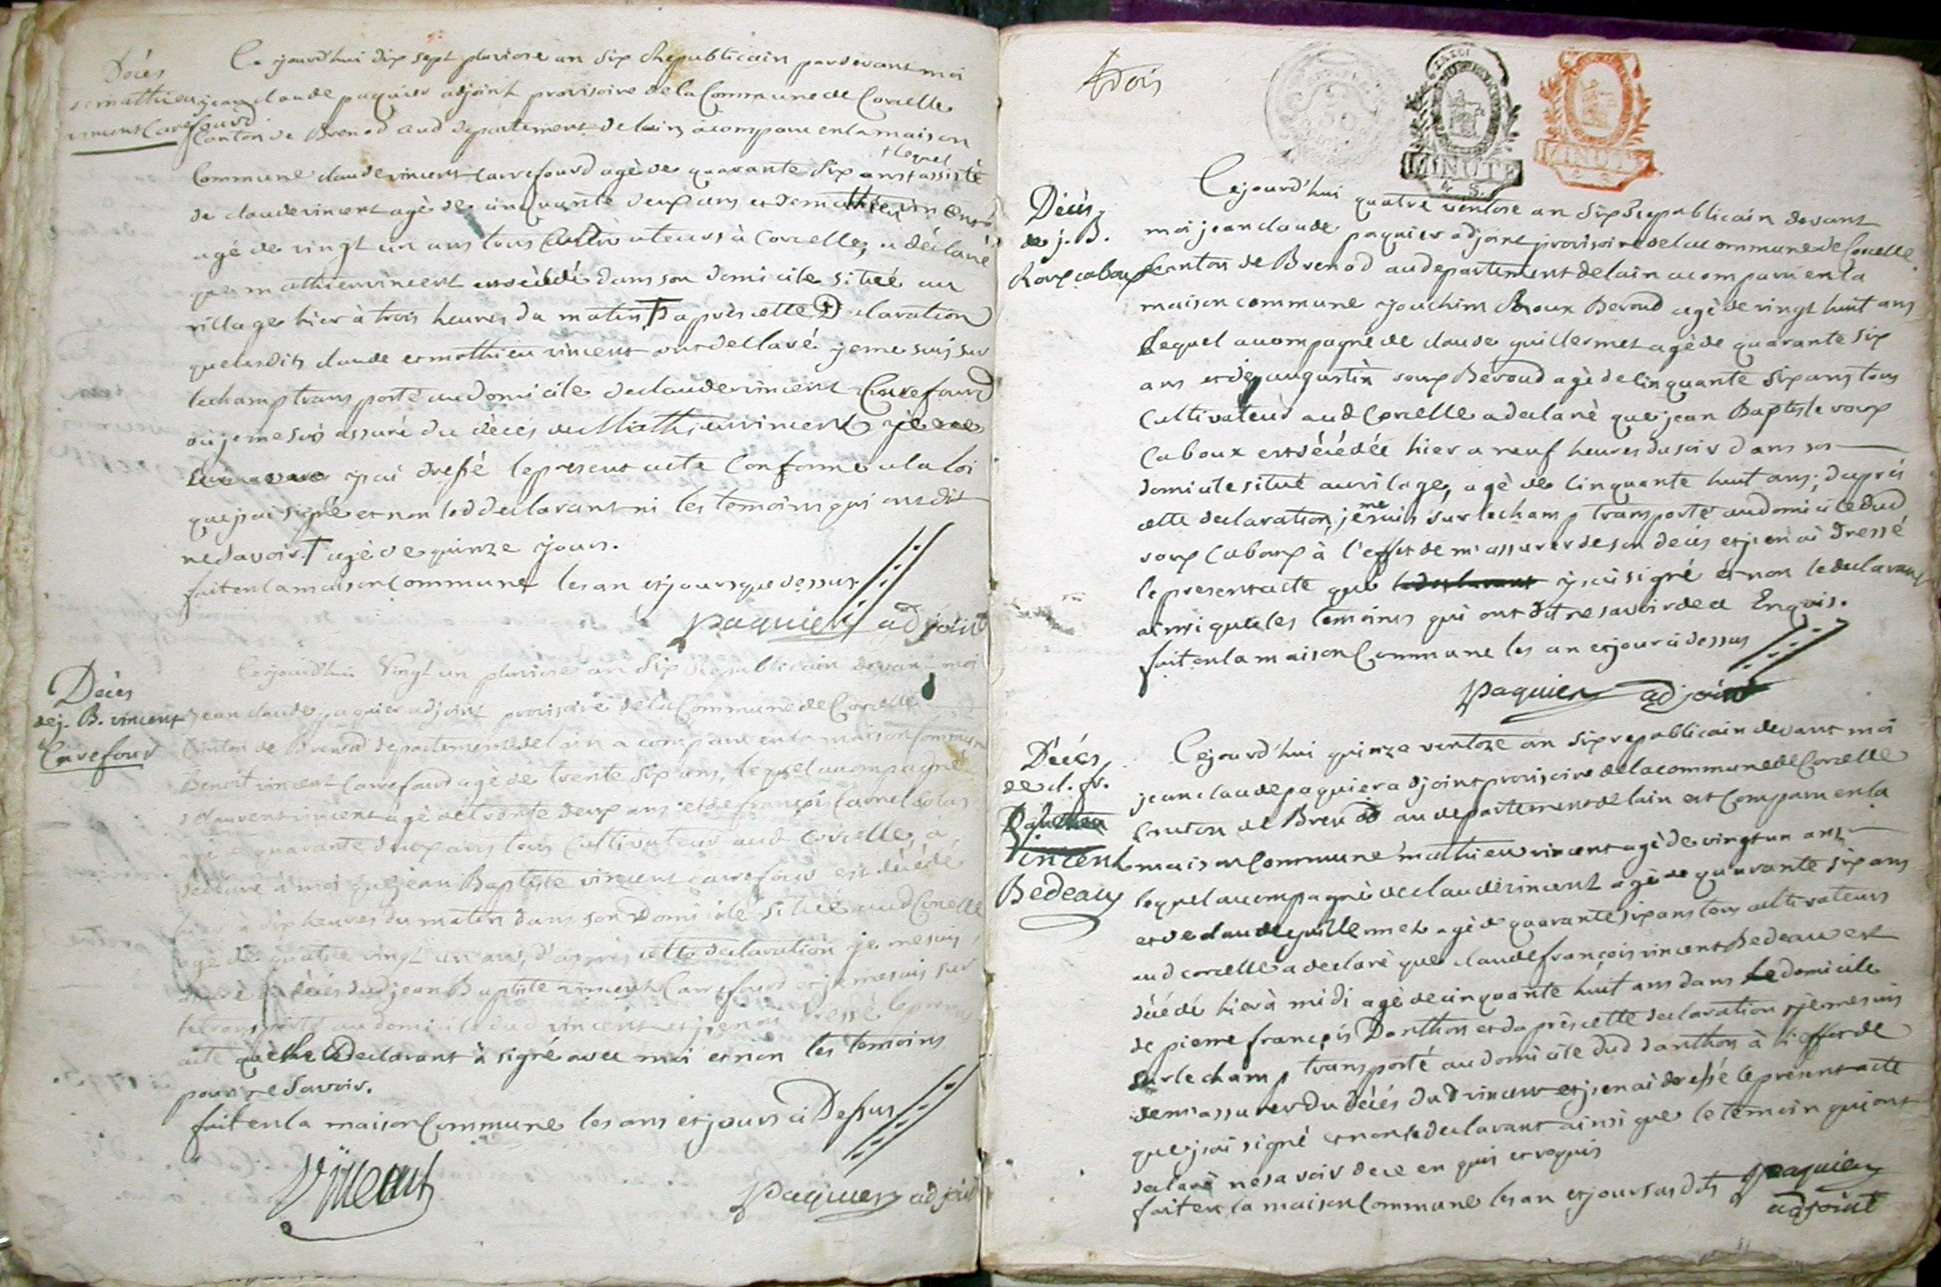 Décès
de mathieu
vincent Carefourd
Ce jourd'hui dix sept pluviose an six Republicain pardevant moi
jean claude paquier adjoint provisoire de la Commune de Corcelle
Canton de Brenod aud departement de lain a comparu en la maison
+ lequel
Commune claude vincent carrefourd agè de quarante six ans + assisté
de claude vincent agè de cinquante deux ans et de mathieu vincent
agé de vingt un ans tous Cultivateurs à Corcelle, a déclaré
que mathieu vincent est dècèdé dans son domicile situé au
village hier à trois heures du matin † après cette Declaration
que lesdits claude et mathieu vincent ont déclaré je me suis sur
le champ transporté au domicile de claude vincent Carefourd
où je me suis assuré du décès du Mathieu vincent je
j'ai dressé le present acte Conforme a la loi
que j'ai signé et non led declarant ni les temoins qui ont dit
ne savoir. † agè de quinze jours.
fait en la maison Commune les an et jours que dessus
paquier adjoint
Décès
de j. B. vincent
Carefour
Cejourd'hui Vingt un pluviose an Six Republicain devant moi
jean claude paquier adjoint provisoire de la Commune de Corcelle
Canton de Brenod departement de lain a comparu en la maison Commune
Benoit vincent Carrefourd agè de trente six ans, lequel accompagné
de laurent vincent agè de trente deux ans et de françois Carrel
agé quarante deux ans tous Cultivateurs aud Corcelle, à
declaré à moi que jean Baptiste vincent carrefour est décédé
hier à dix heures du matin dans son Domicile situé aud Corcelle
agè de quatre vingt un ans, d'après cette declaration je me suis
décès dud jean Baptiste vincent Carrefourd et je me suis sur
transporté au domicile dud vincent et j'en ai dressé le present
acte que le Declarant à signé avec moi et non les temoins
pour ne Savoir.
fait en la maison Commune les ans et jours ci Dessus
Vincent
paquier adjoint
trois
MINUTE
MINUTE
Décès
de j. B.
Roux caboux
Cejourd'hui quatre ventose an six Republicain devant
moi jean claude paquier adjoint provisoire de la commune de Corcelle
Canton de Brenod au departement de lain a comparu en la
maison commune joachim Roux Beroud agè de vingt huit ans
Lequel accompagné de claude guillermet agè de quarante six
ans et de augustin roux Beroud agè de Cinquante six ans tous
Cultivateurs aud Corcelle a declarè que jean Baptiste roux
Caboux est décédée hier a neuf heures du soir dans son
domicile situé au vilage, agè de Cinquante huit ans; d'après
me
cette declaration je suis sur le champ transporté au domicile dud
roux Caboux à l'effet de m'assurer de son decés et j'en ai Dressé
le present acte que j'ai signé et non le declarant
ainsi que les temoins qui ont dit ne savoir de ce Enquis.
fait en la maison Commune les an et jour ci dessus
paquier adjoint
Décés
de cl. fr.
Vincent
Bedeaux
Cejourd'hui quinze ventoze an six republicain devant moi
jean claude paquier adjoint provisoire de la commune de Corcelle
Canton de Brenod au departement de lain est Comparu en la
maison Commune mathieu vincent agè de vingt un ans
lequel accompagné de claude vincent agè de quarante six ans
et de claude guillermet agè de quarante six ans tous cultivateurs
aud corcelle a declarè que claude françois vincent Bedeau est
décédé hier à midi agè de cinquante huit ans dans le domicile
de pierre françois Danthon et d'après cette declaration je me suis
sur le champ transporté au domicile dud danthon à l'effet de
de m'assurer du décés dud vincent et j'en ai dressé le present acte
que j'ai signé et non le declarant ainsi que le temoin qui ont
declaré ne savoir de ce en quis et requis
fait en la maison Commune les an et jour susdits paquier
adjoint